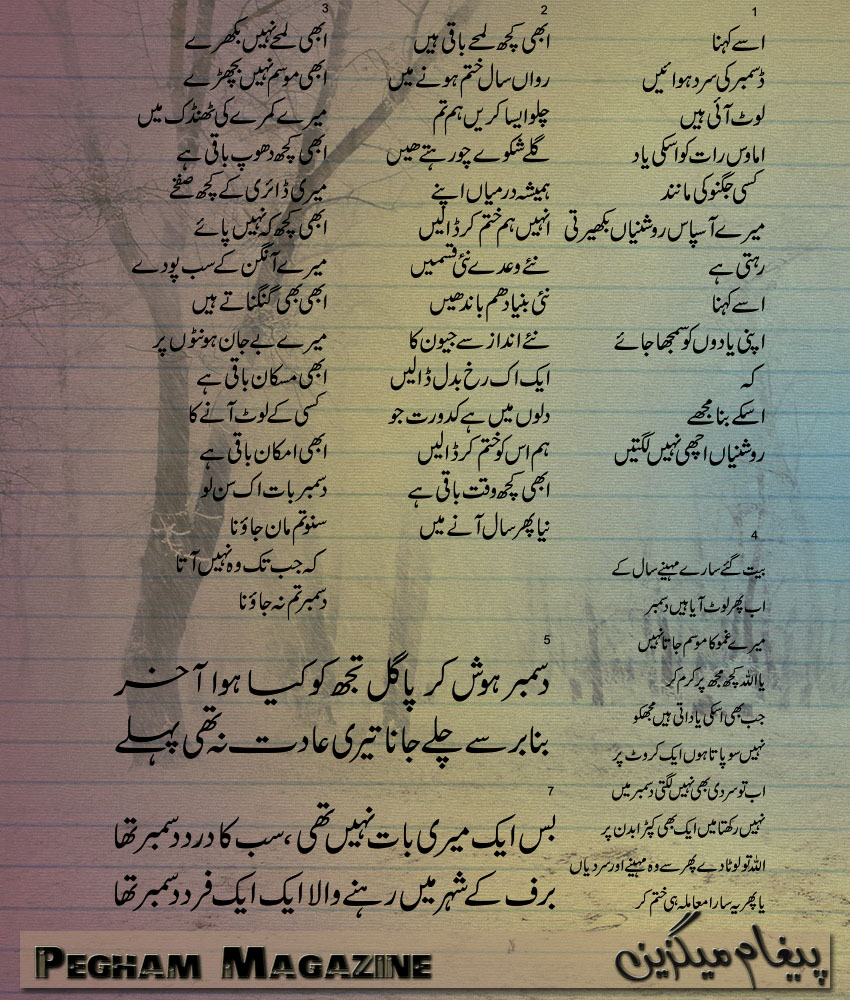 1
اسے کہنا
ڈسمبر کی سرد ہوائیں
لوٹ آئی ہیں
اماوس رات کو اسکی یاد
کسی جگنو کی مانند
میرے آسپاس روشنیاں بکھیرتی
رہتی ہے
اسے کہنا
اپنی یادوں کو سمجھا جائے
کہ
اسکے بنا مجھے
روشنیاں اچھی نہیں لگتیں
2
ابھی کچھ لمحے باقی ہیں
رواں سال ختم ہونے میں
چلو ایسا کریں ہم تم
گلے شکوے جو رہتے ھیں
ہمیشہ درمیاں اپنے
انہیں ہم ختم کر ڈالیں
نئے وعدے نئی قسمیں
نئی بنیاد ھم باندھیں
نئے انداز سے جیون کا
ایک اک رخ بدل ڈالیں
دلوں میں ہے کدورت جو
ہم اس کو ختم کر ڈالیں
ابھی کچھ وقت باقی ہے
نیا پھر سال آنے میں
3
ابھی لمحے نہیں بکھرے
ابھی موسم نہیں بچھڑے
میرے کمرے کی ٹھنڈک میں
ابھی کچھ دھوپ باقی ہے
میری ڈائری کے کچھ صفحے
ابھی کچھ کہ نہیں پائے
میرے آنگن کے سب پودے
ابھی بھی گنگناتے ہیں
میرے بے جان ہونٹوں پر
ابھی مسکان باقی ہے
کسی کے لوٹ آنے کا
ابھی امکان باقی ہے
دسمبر بات اک سن لو
سنو تم مان جاؤنا
کہ جب تک وہ نہیں آتا
دسمبر تم نہ جاؤنا
4
بیت گئے سارے مہینے سال کے
اب پھر لوٹ آیا ہیں دسمبر
میرے غمو کا موسم جاتا نہیں
یا اللہ کچھ مجھ پر کرم کر
جب بھی اسکی یاد اتی ہیں مجھکو
نہیں سو پاتا ہوں ایک کروٹ پر
اب تو سردی بھی نہیں لگتی دسمبر میں
نہیں رکھتا میں ایک بھی کپڑا بدن پر
اللہ تو لوٹا دے پھر سے وہ مہینے اور سردیاں
یا پھر یہ سارا معاملہ ہی ختم کر
5
دسمبر ہوش کر پاگل تجھ کو کیا ہوا آخر
بنا برسے چلے جانا تیری عادت نہ تھی پہلے
7
بس ایک میری بات نہیں تھی ، سب کا درد دسمبر تھا
برف کے شہر میں رہنے والا ایک ایک فرد دسمبر تھا
Pegham Magazine
پیغام میگزین